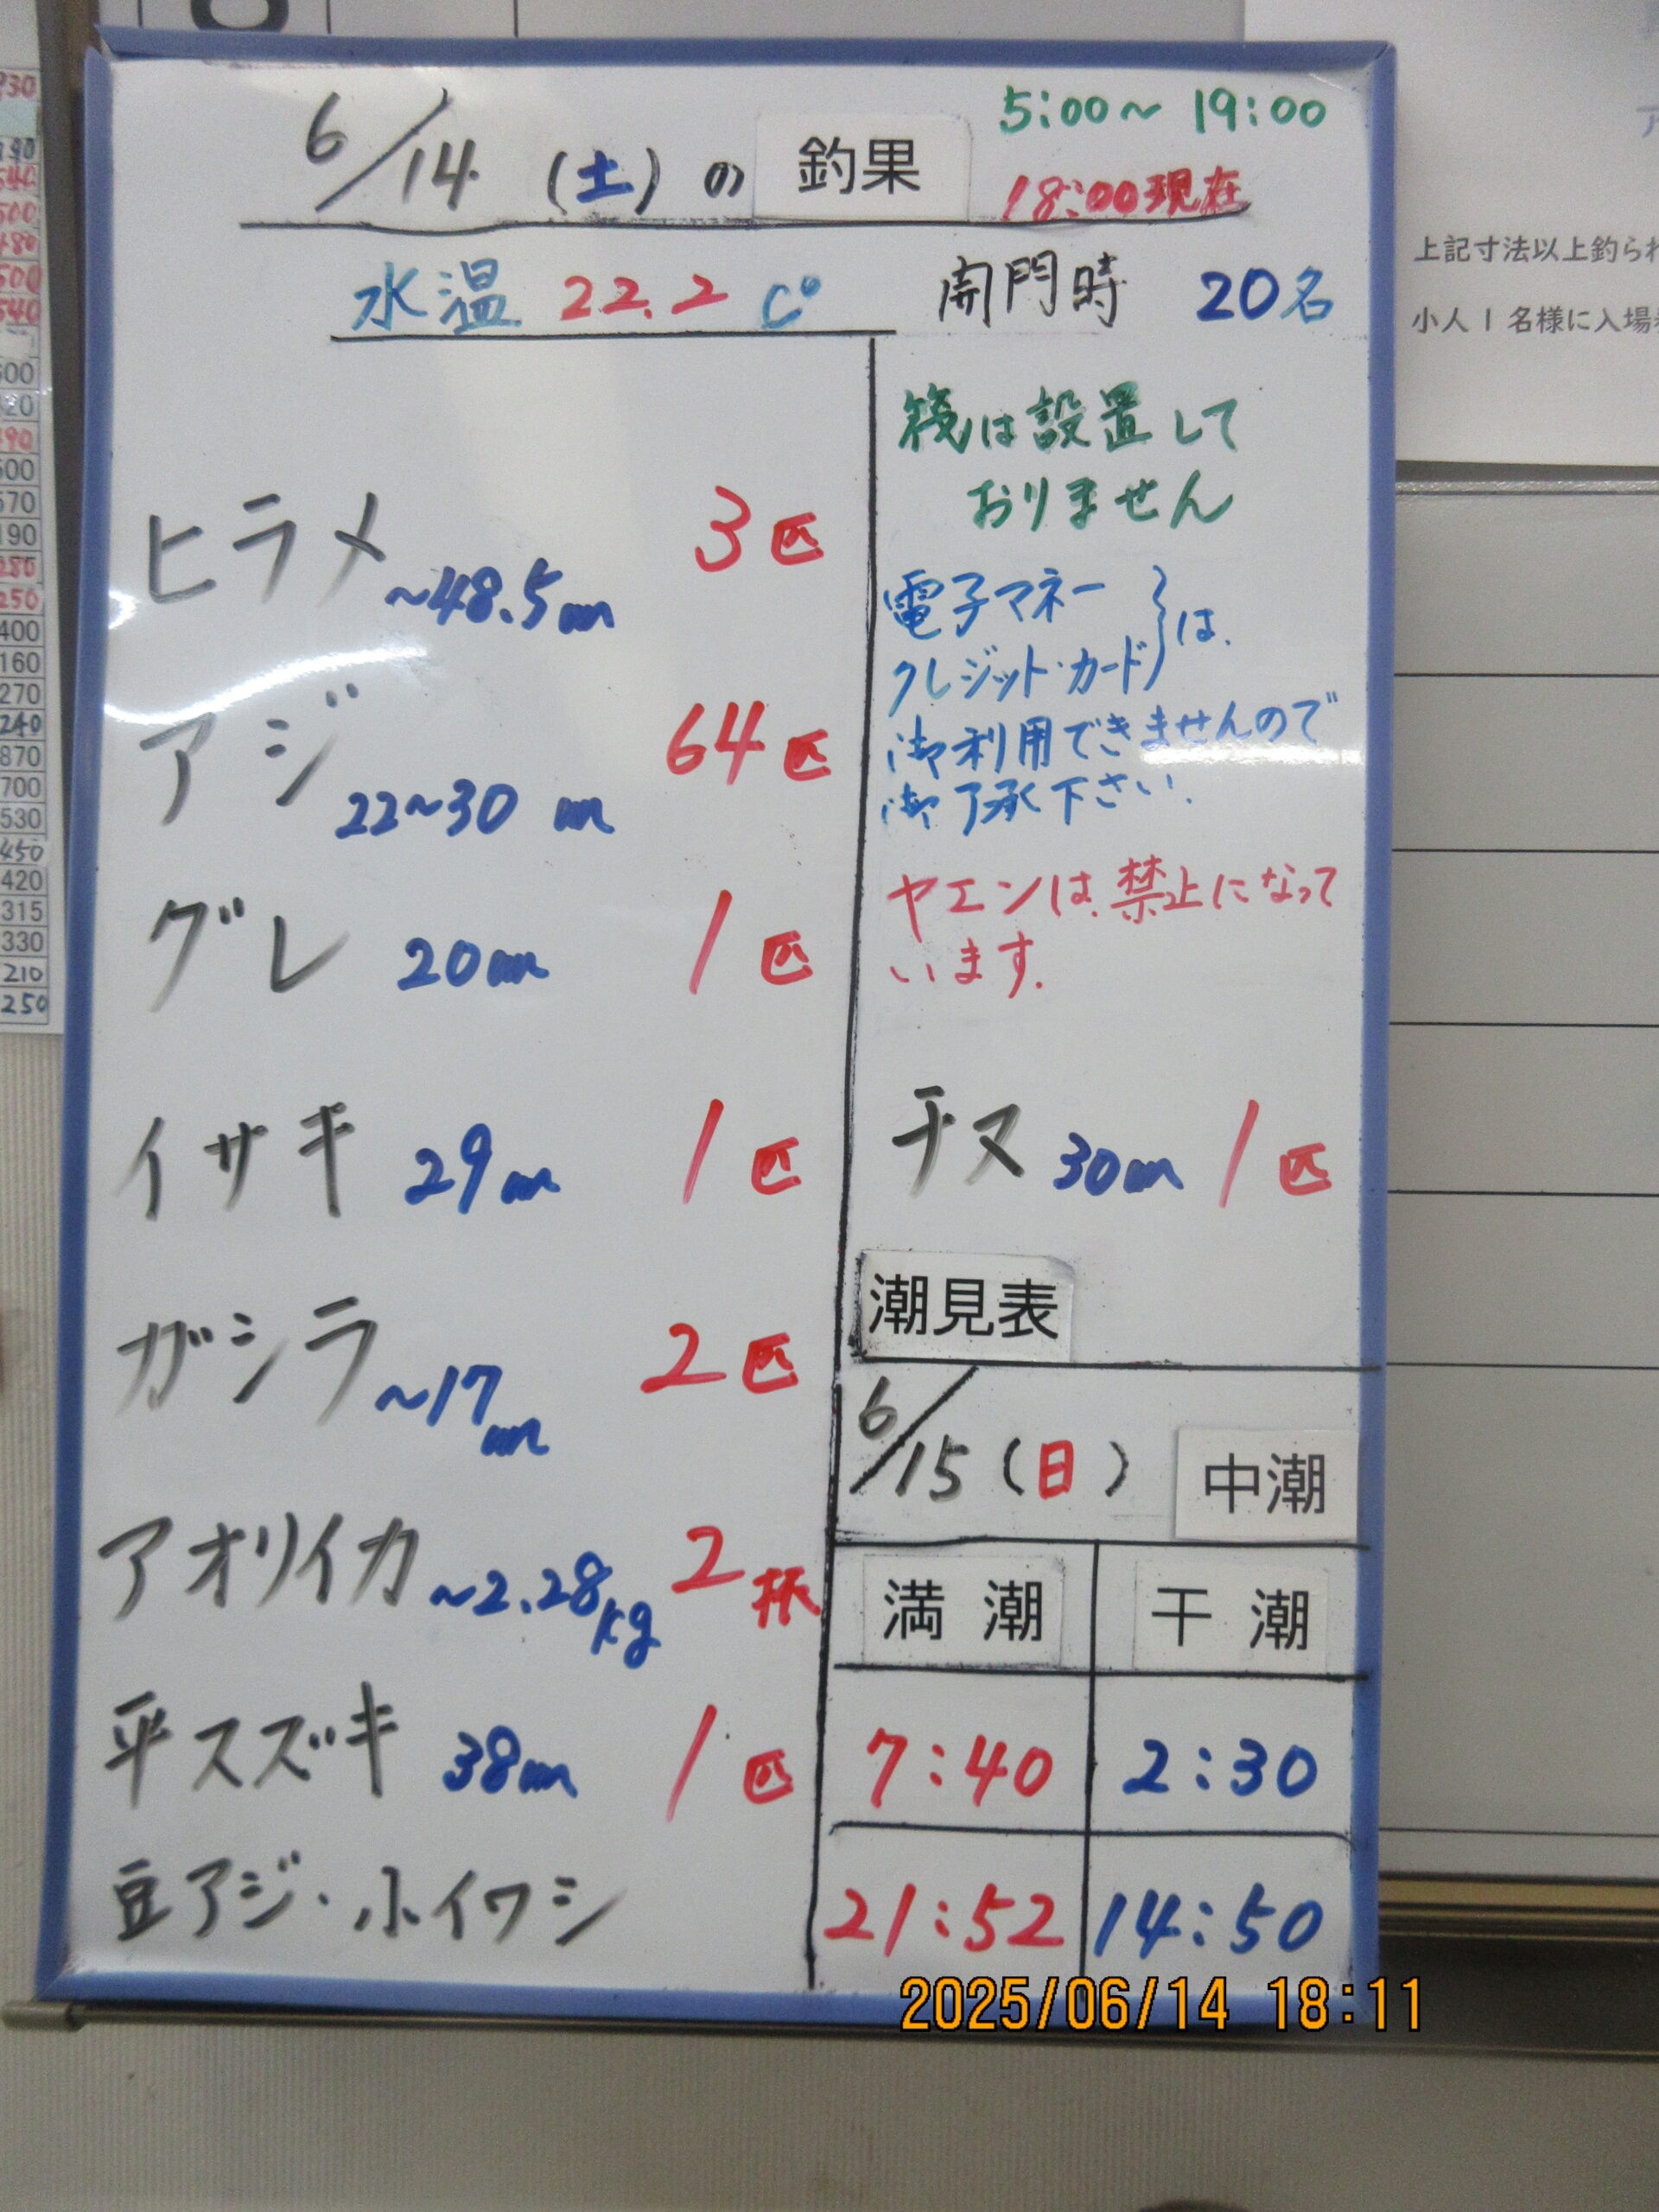 6/14 (土) の 釣果
5:00～19:00
18:00現在
水温 22.2 C°
開門時 20名
ヒラメ ～48.5cm 3匹
アジ 22～30cm 64匹
グレ 20cm 1匹
イサキ 29cm 1匹
ガシラ ～17cm 2匹
アオリイカ ～2.28kg 2杯
平スズキ 38cm 1匹
豆アジ・小イワシ
筏は設置して
おりません
電子マネー
クレジット・カード}は、
御利用できませんので
御了承下さい.
ヤエンは、禁止になって
います.
チヌ 30cm 1匹
潮見表
6/15 (日) 中潮
満潮 干潮
7:40 2:30
21:52 14:50
2025/06/14 18:11
上記寸法以上釣られ
小人1名様に入場
930
500
480
500
540
600
570
190
280
250
400
160
270
240
870
700
530
450
420
315
330
210
250